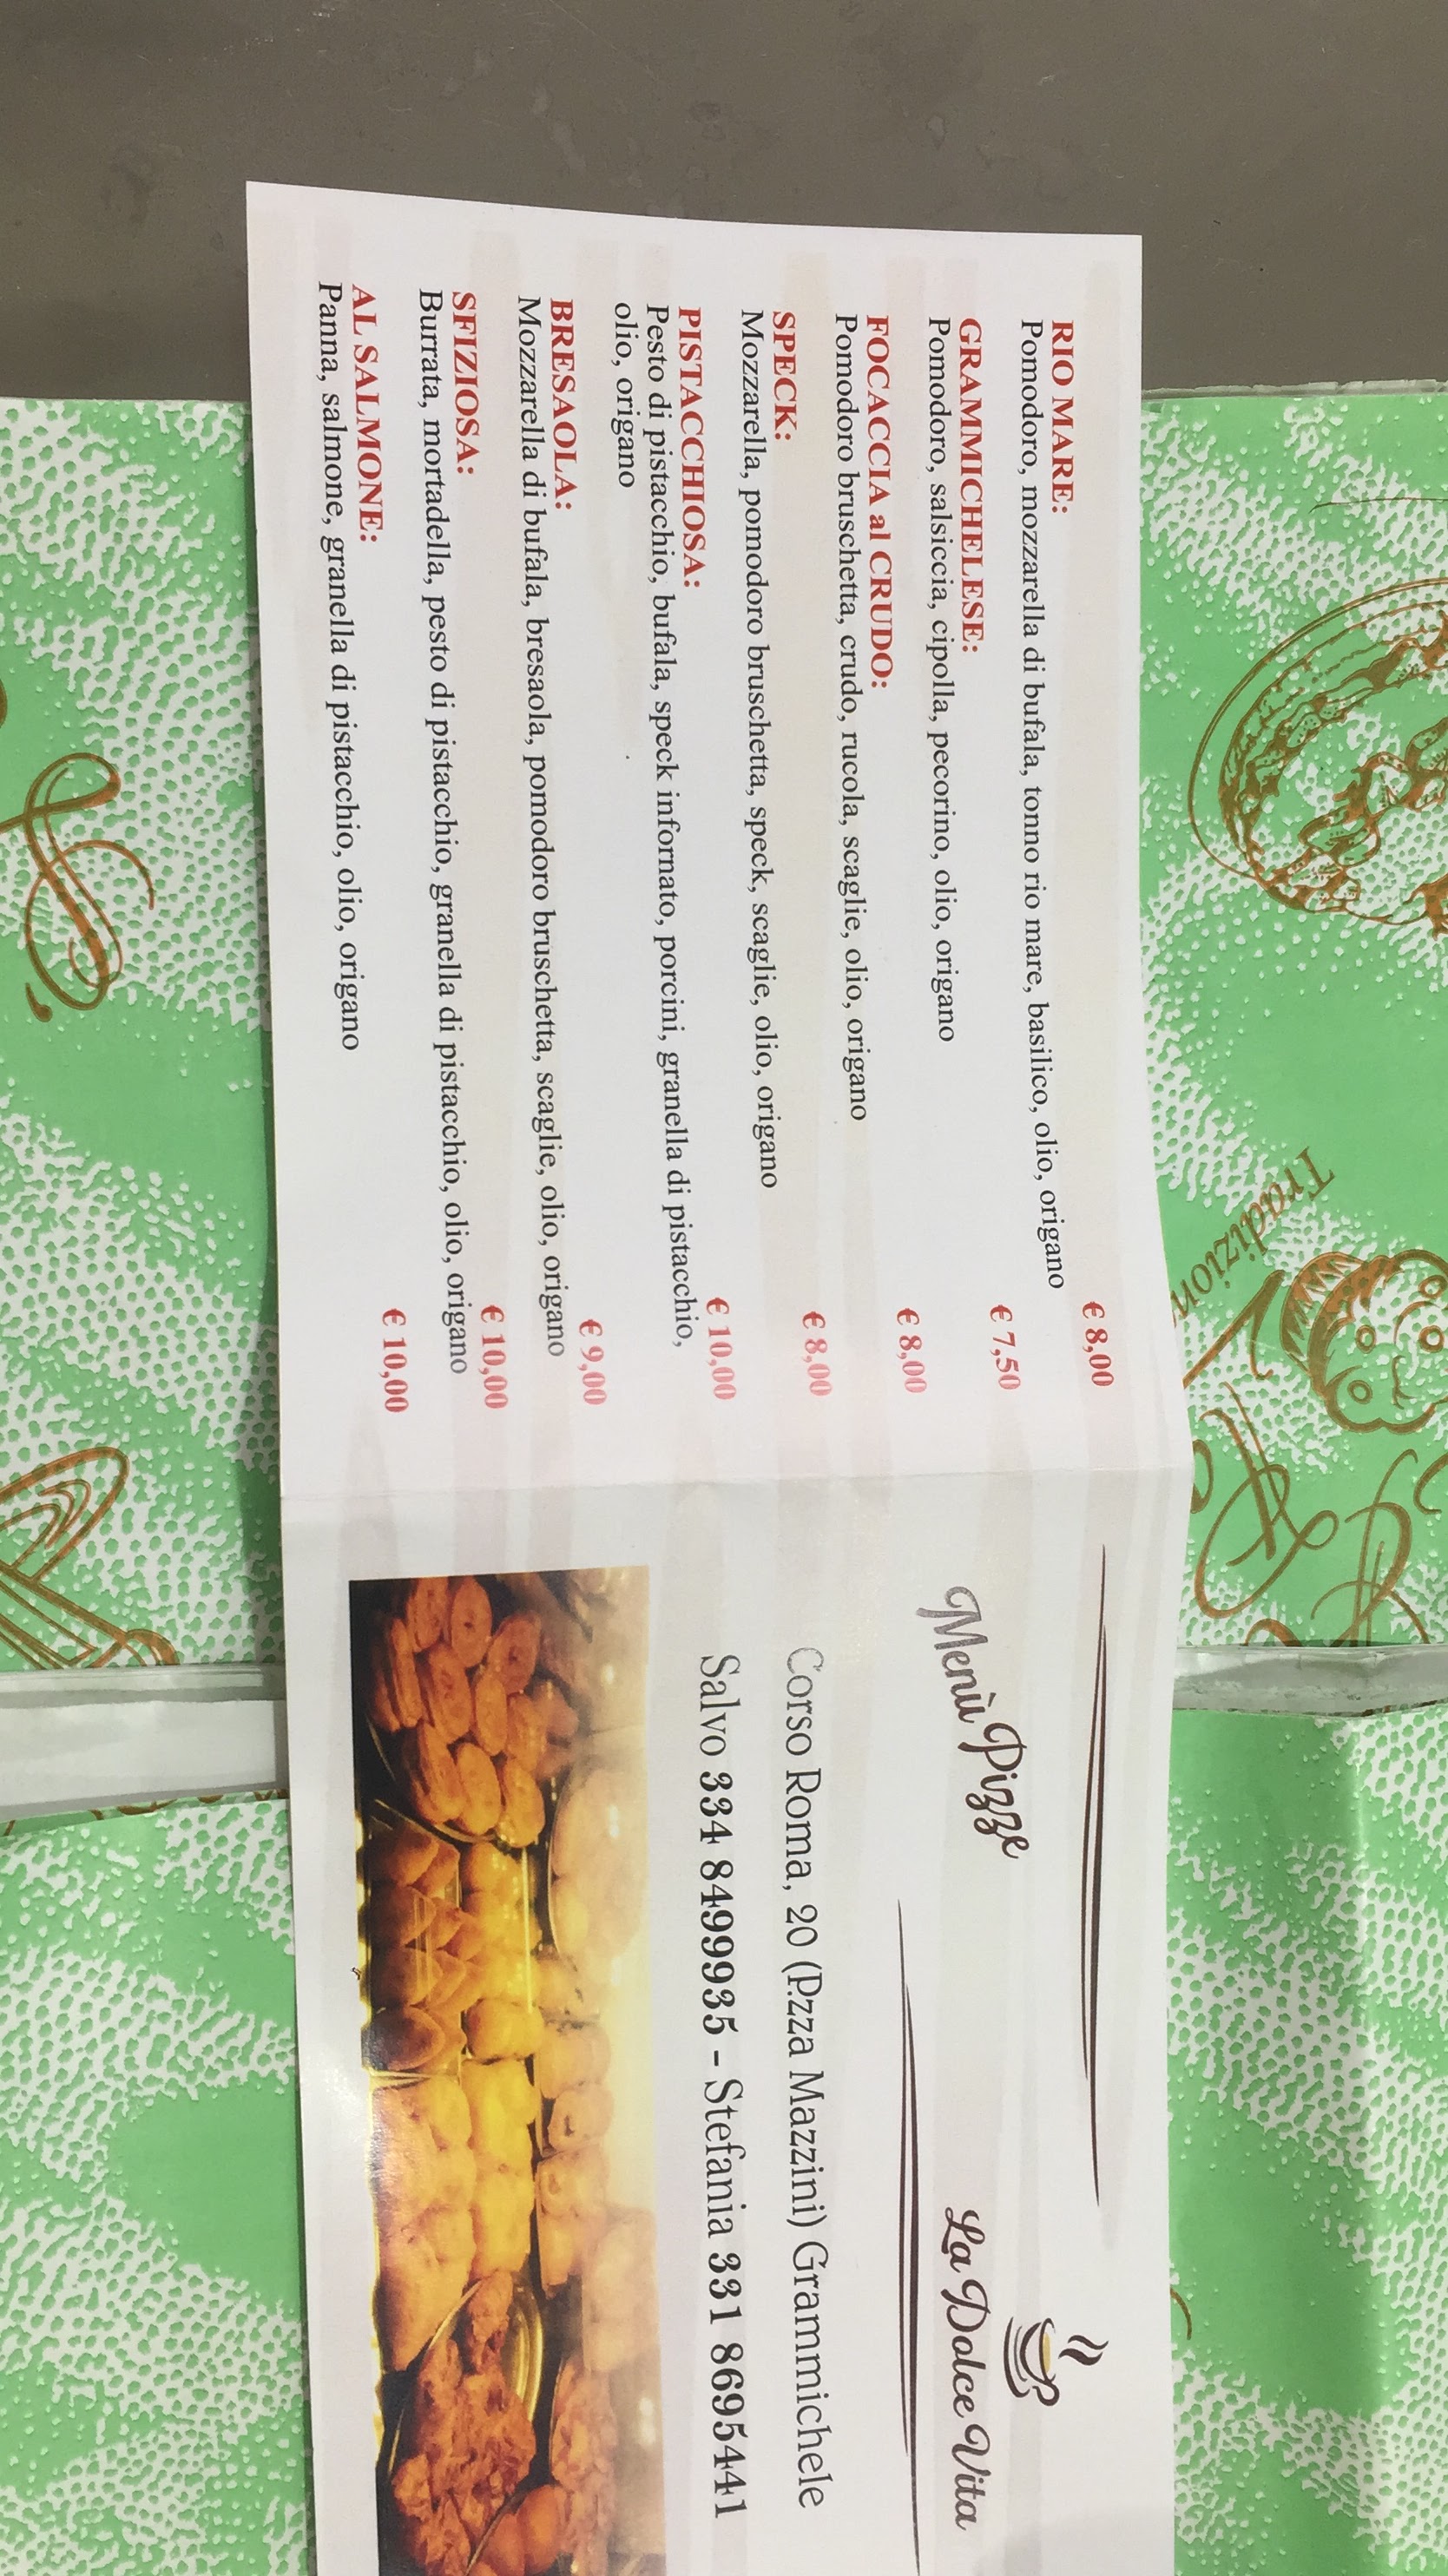 RIO MARE: € 8,00
Pomodoro, mozzarella di bufala, tonno rio mare, basilico, olio, origano
GRAMMICHELESE: € 7,50
Pomodoro, salsiccia, cipolla, pecorino, olio, origano
FOCACCIA al CRUDO: € 8,00
Pomodoro bruschetta, crudo, rucola, scaglie, olio, origano
SPECK: € 8,00
Mozzarella, pomodoro bruschetta, speck, scaglie, olio, origano
PISTACCHIOSA: € 10,00
Pesto di pistacchio, bufala, speck infornato, porcini, granella di pistacchio,
olio, origano
BRESAOLA: € 9,00
Mozzarella di bufala, bresaola, pomodoro bruschetta, scaglie, olio, origano
SFIZIOSA: € 10,00
Burrata, mortadella, pesto di pistacchio, granella di pistacchio, olio, origano
AL SALMONE: € 10,00
Panna, salmone, granella di pistacchio, olio, origano
Menù Pizze
La Dolce Vita
Corso Roma, 20 (P.zza Mazzini) Grammichele
Salvo 334 8499935 - Stefania 331 8695441